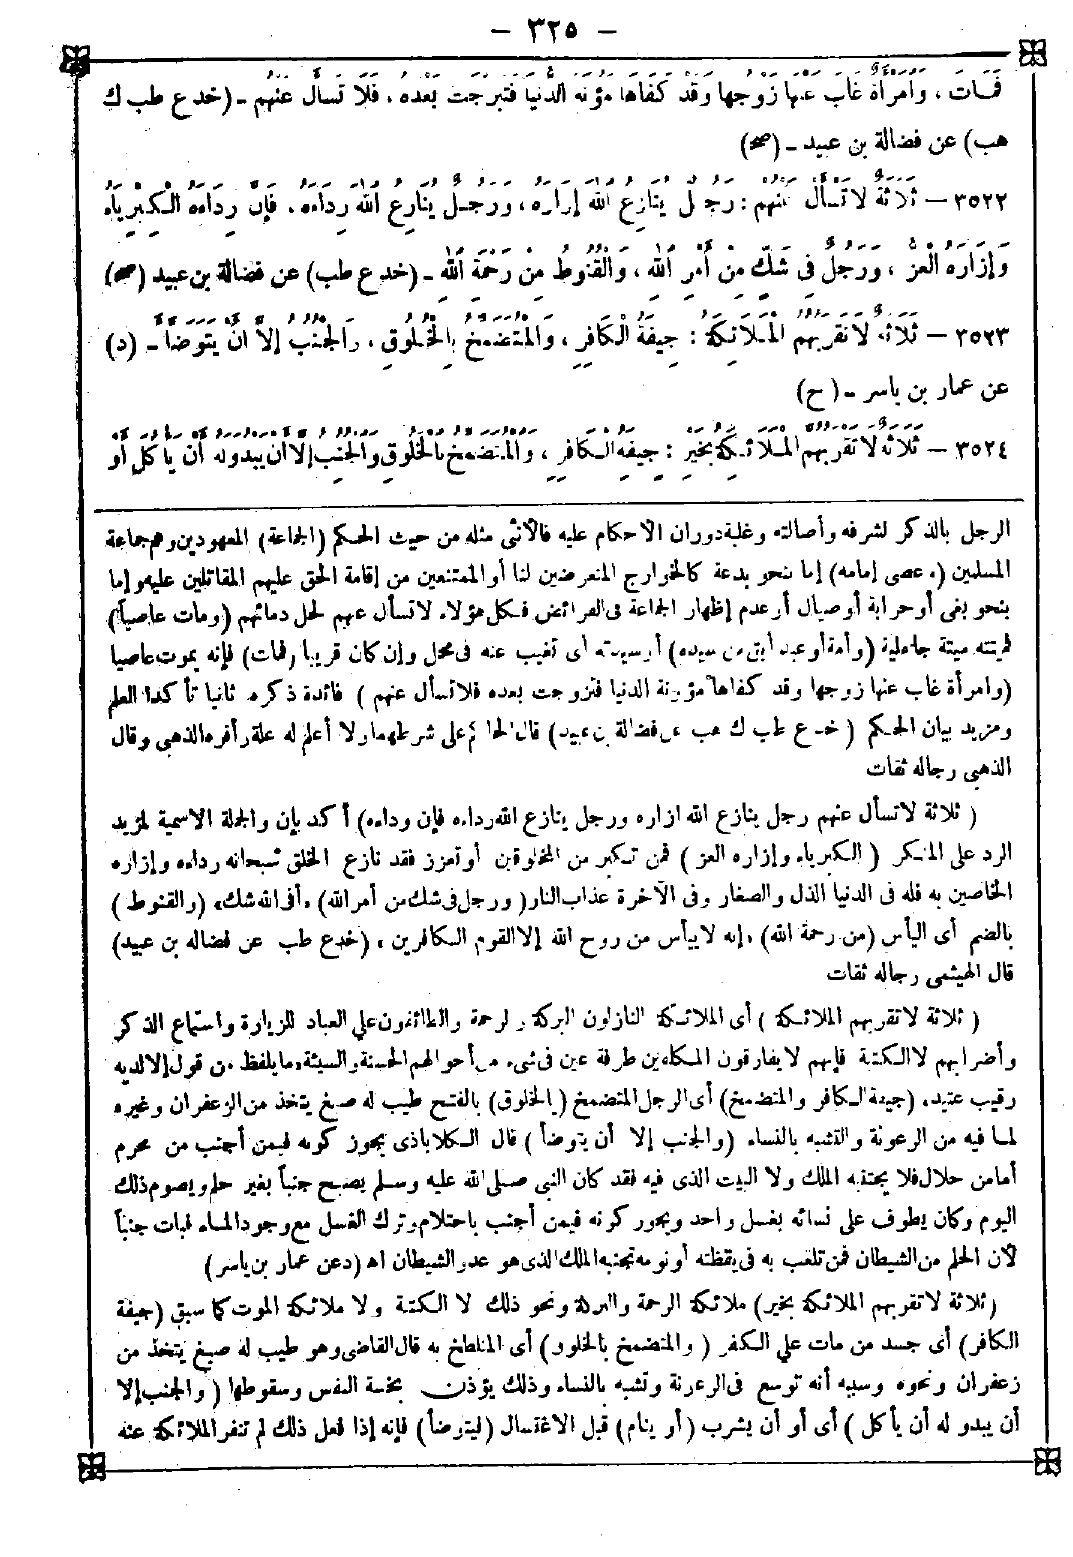 - ٣٢٥ -
فَمَاتَ ، وَامْرَأَةٌ غَابَ عَنْهَا زَوْجُهَا وَقَدْ كَفَاهَا مَؤُنَةَ الدُّنْيَا فَتَبَرَّجَتْ بَعْدَهُ ، فَلَا تَسْأَلْ عَنْهُمْ - (خد ع طب ك
هب) عن فضالة بن عبيد - (صح)
٣٥٢٢ - ثَلَاثَةٌ لَا تَسْأَلْ عَنْهُمْ : رَجُلٌ يُنَازِعُ اللهَ إِزَارَهُ ، وَرَجُلٌ يُنَازِعُ اللهَ رِدَاءَهُ ، فَإِنَّ رِدَاءَهُ الْكِبْرِيَاءُ
وَإِزَارَهُ الْعِزُّ ، وَرَجُلٌ فِى شَكٍّ مِنْ أَمْرِ اللهِ ، وَالْقُنُوطُ مِنْ رَحْمَةِ اللهِ - (خد ع طب) عن فضالة بن عبيد (صح)
٣٥٢٣ - ثَلَاثَةٌ لَا تَقْرَبُهُمُ الْمَلَائِكَةُ : جِيفَةُ الْكَافِرِ ، وَالْمُتَضَمِّخُ بِالْخَلُوقِ ، وَالْجُنُبُ إِلَّا أَنْ يَتَوَضَّأَ - (د)
عن عمار بن ياسر - (ح)
٣٥٢٤ - ثَلَاثَةٌ لَا تَقْرَبُهُمُ الْمَلَائِكَةُ بِخَيْرٍ : جِيفَةُ الْكَافِرِ ، وَالْمُتَضَمِّخُ بِالْخَلُوقِ وَالْجُنُبُ إِلَّا أَنْ يَبْدُوَ لَهُ أَنْ يَأْكُلَ أَوْ
الرجل بالذكر لشرفه وأصالته وغلبة دوران الأحكام عليه فالأنثى مثله من حيث الحكم (الجماعة) المعهودين وهم جماعة
المسلمين (وعصى إمامه) إما بنحو بدعة كالخوارج المتعرضين لنا أو الممتنعين من إقامة الحق عليهم المقاتلين عليه وإما
بنحو بغى أو حرابة أو صيال أو عدم إظهار الجماعة فى الفرائض فكل هؤلاء لا تسأل عنهم لحل دمائهم (ومات عاصياً)
فميتته ميتة جاهلية (وأمة أو عبد أبق من سيده) أو سيدته أى تغيب عنه فى محل وإن كان قريبا (فمات) فإنه يموت عاصيا
(وامرأة غاب عنها زوجها وقد كفاها مؤونة الدنيا فتزوجت بعده فلا تسأل عنهم ) فائدة ذكره ثانيا تأكد العلم
ومزيد بيان الحكم ( خد ع طب ك هب عن فضالة بن عبيد) قال الحاكم على شرطهما ولا أعلم له علة وأقره الذهبى وقال
الذهبى رجاله ثقات
( ثلاثة لا تسأل عنهم رجل ينازع الله ازاره ورجل ينازع الله رداءه فإن رداءه) أكد بإن والجملة الاسمية لمزيد
الرد على المنكر ( الكبرياء وإزاره العز ) فمن تكبر من المخلوقين أو تعزز فقد نازع الخالق سبحانه رداءه وإزاره
الخاصين به فله فى الدنيا الذل والصغار وفى الآخرة عذاب النار ( ورجل فى شك من أمر الله) ، أفى الله شك ، (والقنوط )
بالضم أى اليأس (من رحمة الله) ، إنه لا ييأس من روح الله إلا القوم الكافرين ، (خد ع طب عن فضاله بن عبيد)
قال الهيثمى رجاله ثقات
( ثلاثة لا تقربهم الملائكة ) أى الملائكة النازلون بالبركة والرحمة والطائفون على العباد للزيارة واستماع الذكر
وأضرابهم لا الكتبة فإنهم لا يفارقون المكلفين طرفة عين فى شىء من أحوالهم الحسنة والسيئة ، ما يلفظ من قول إلا لديه
رقيب عتيد ، (جيفة الكافر والمتضمخ) أى الرجل المتضمخ (بالخلوق) بالفتح طيب له صبغ يتخذ من الزعفران وغيره
لما فيه من الرعونة والتشبه بالنساء (والجنب إلا أن يتوضأ ) قال الكلاباذى يجوز كونه فيمن أجنب من محرم
أما من حلال فلا يجتنبه الملك ولا البيت الذى فيه فقد كان النبى صلى الله عليه وسلم يصبح جنباً بغير حلم ويصوم ذلك
اليوم وكان يطوف على نسائه بغسل واحد ويجوز كونه فيمن أجنب باحتلام وترك الغسل مع وجود الماء فبات جنباً
لأن الحلم من الشيطان فمن تلعب به فى يقظته أو نومه تجنبه الملك الذى هو عدو الشيطان اه (د عن عمار بن ياسر)
(ثلاثة لا تقربهم الملائكة بخير) ملائكة الرحمة والبركة ونحو ذلك لا الكتبة ولا ملائكة الموت كما سبق (جيفة
الكافر) أى جسد من مات على الكفر ( والمتضمخ بالخلوق) أى المتلطخ به قال القاضى وهو طيب له صبغ يتخذ من
زعفران ونحوه وسببه أنه توسع فى الرعونة وتشبه بالنساء وذلك يؤذن بخسة النفس وسقوطها ( والجنب إلا
أن يبدو له أن يأكل ) أى أو أن يشرب (أو ينام) قبل الاغتسال (ليتوضأ) فإنه إذا فعل ذلك لم تنفر الملائكة عنه